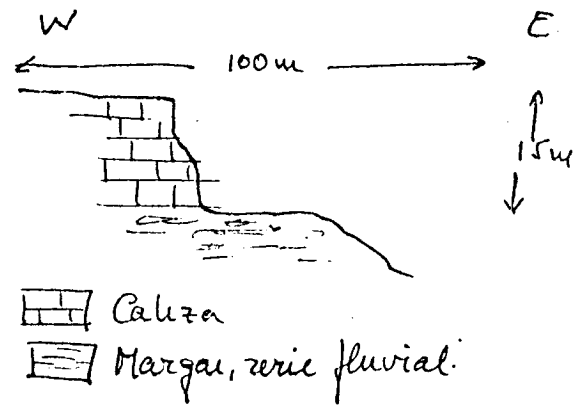 W E
100 m
15 m
Caliza
Margas, serie fluvial.